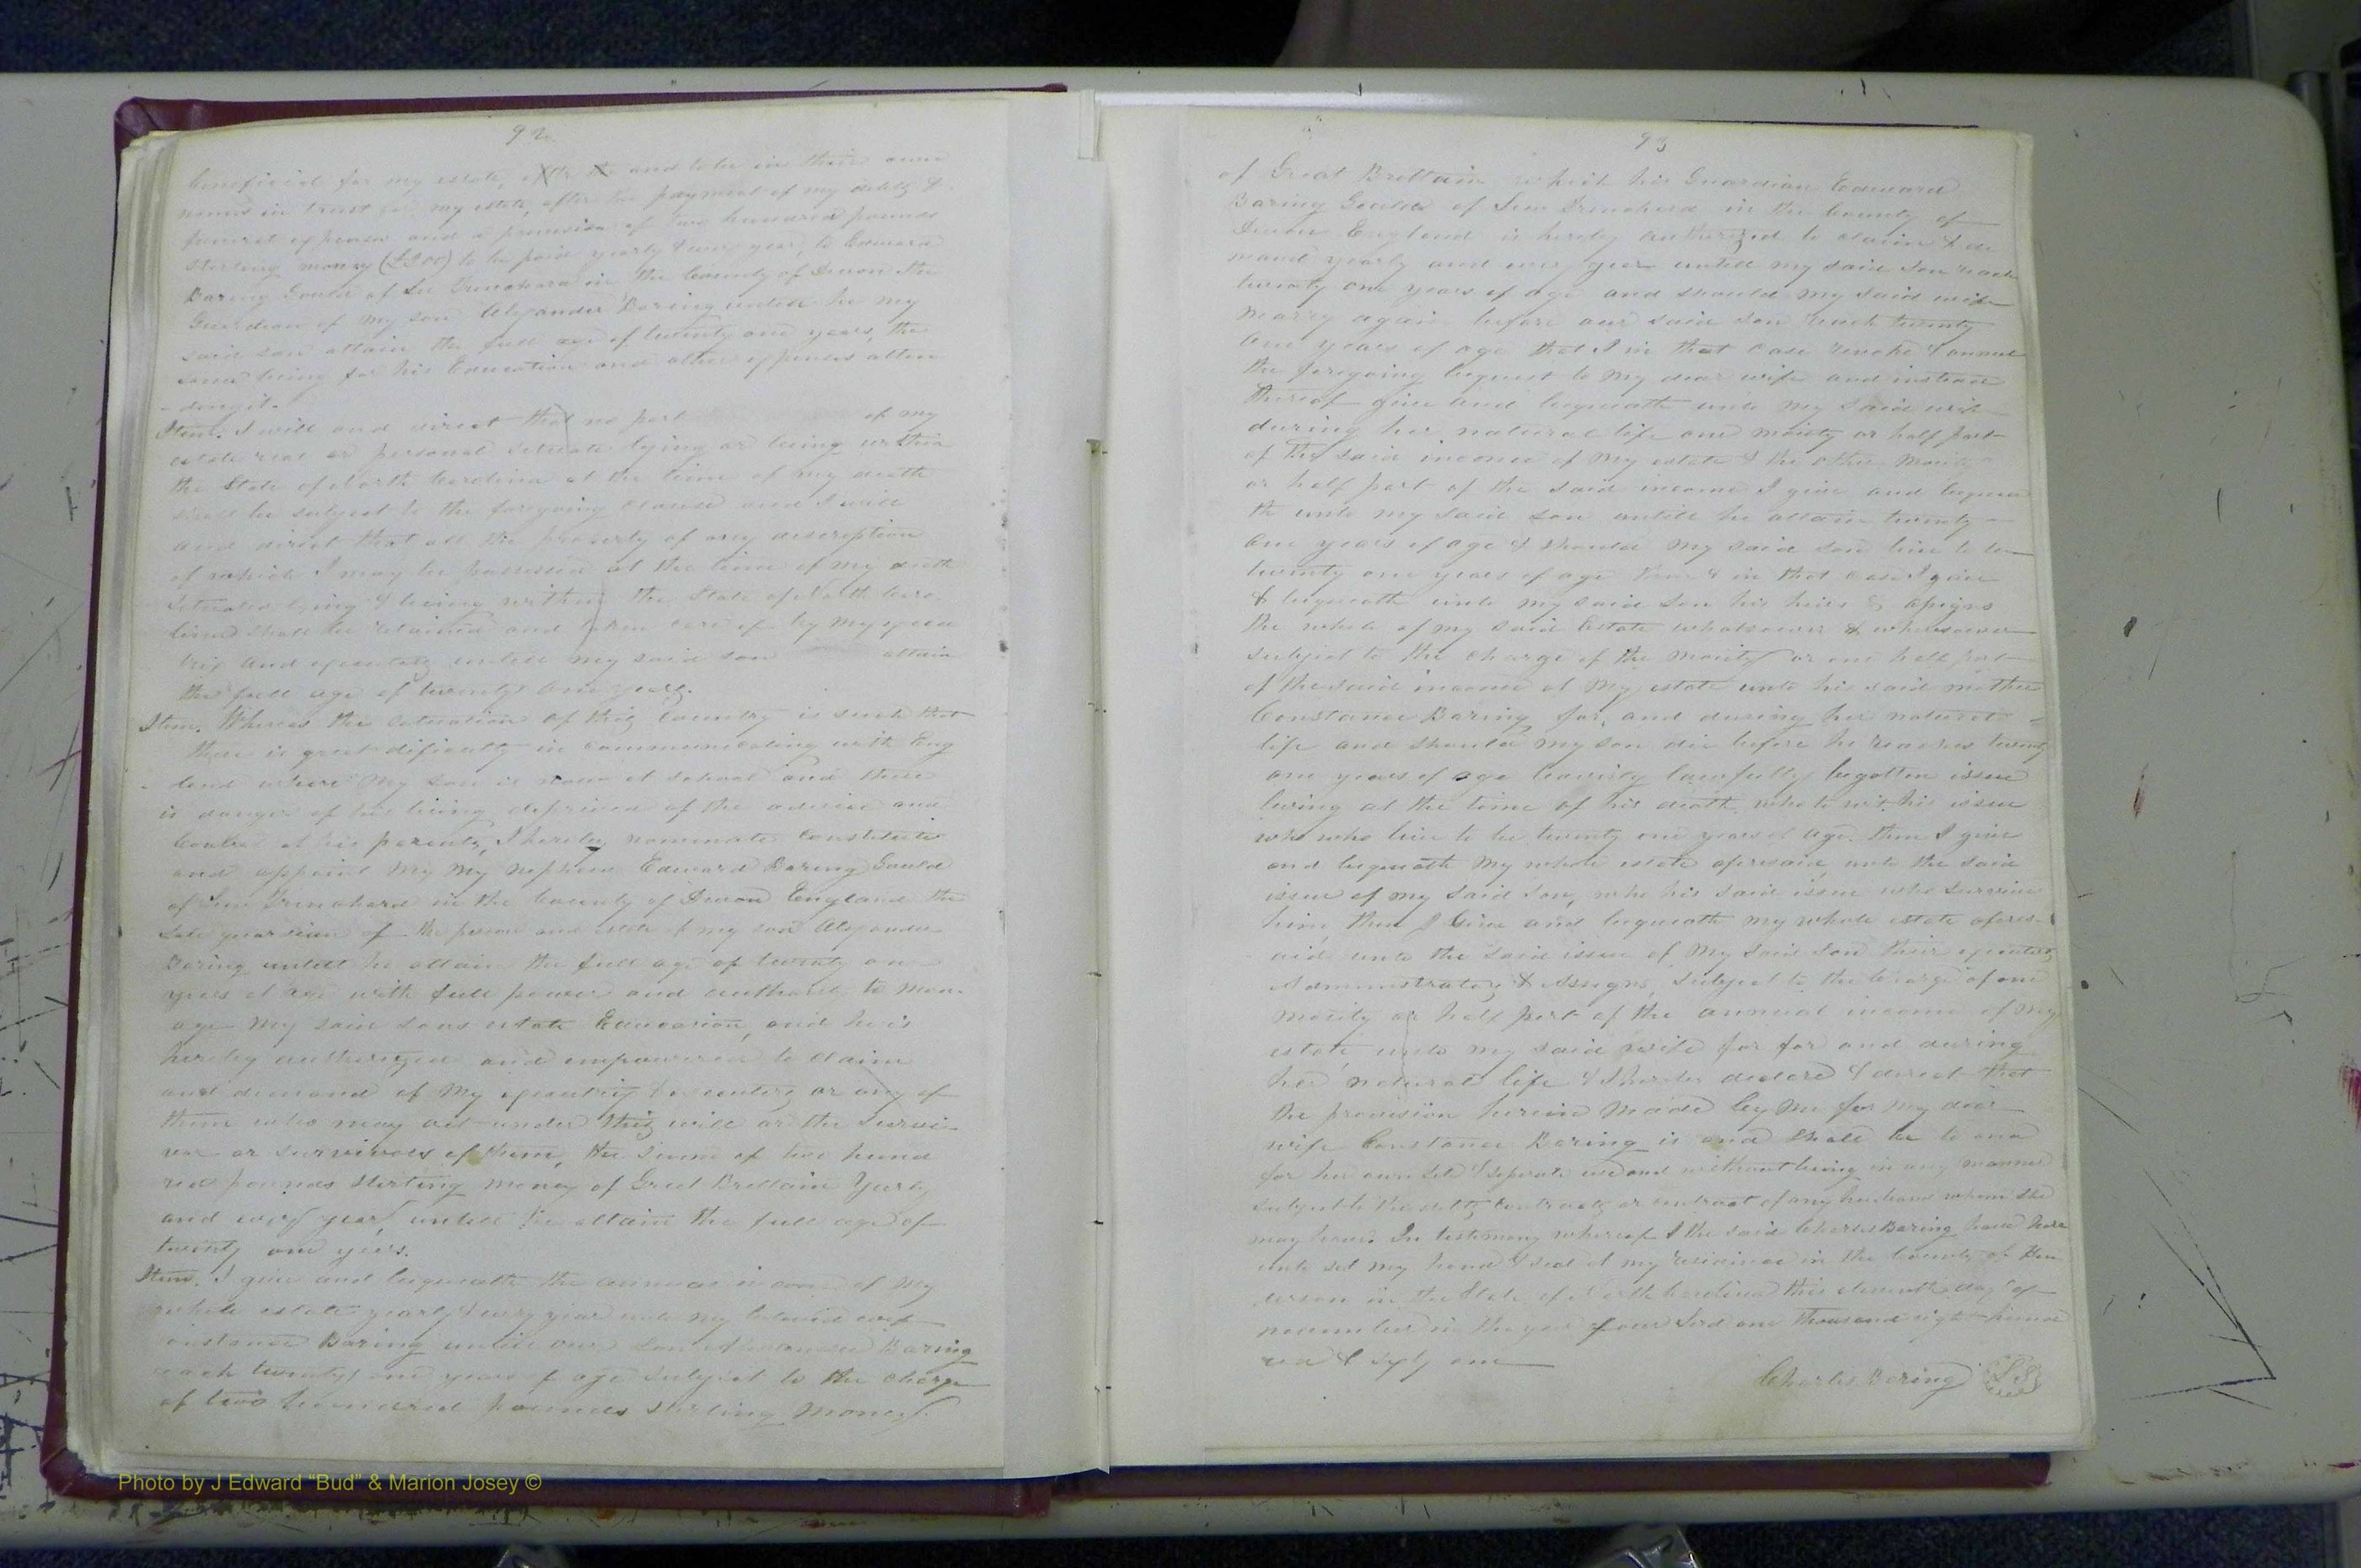 92
beneficial for my estate, and later in their own
names in trust for my estate, after the payment of my debts &
funeral expenses and a provision of two hundred pounds
sterling money (£200) to be paid yearly & every year, to Edward
Baring Gould of Lew Trenchard in the County of Devon the
Guardian of my son Alexander Baring untill he my
said son attain the full age of twenty one years, the
same being for his Education and other expenses atten
- ding it.
Item. I will and direct that no part of my
estate real or personal situate lying or being within
the State of North Carolina at the time of my death
shall be subject to the foregoing clause and I will
and direct that all the property of any description
of which I may be possessed at the time of my death
situated lying & being within the State of North Caro
lina shall be retained and taken care of by my execu
trix and executors untill my said son attain
the full age of twenty one years.
Item. Whereas the situation of this country is such that
there is great dificulty in communicating with Eng
- land where my son is now at school and there
is danger of his being deprived of the advice and
Control of his parents, I hereby nominate constitute
and appoint my my nephew Edward Baring Gould
of Lew Trenchard in the County of Devon England the
sole guardian of the person and estate of my son Alexander
Baring untill he attain the full age of twenty one
years of age with full power and authority to man-
age my said sons estate Education, and he is
hereby authorized and empowered to claim
and demand of my executrix & executors or any of
them who may act under this will or the survi-
vor or survivors of them, the sum of two hund
red pounds sterling money of Great Brettain Yearly
and every year, untill he attain the full age of
twenty one years.
Item. I give and bequeath the annual income of my
whole estate yearly & every year unto my beloved wife
Constance Baring untill our son Alexander Baring
reach twenty one years of age subject to the charge
of two hundred pounds sterling money.
93
of Great Brettain which his Guardian Edward
Baring Gould of Lew Trenchard in the County of
Devon England is hereby authorized to claim & de
mand yearly and every year untill my said Son reach
twenty one years of age and should my said wife
marry again before our said son reach twenty
one years of age that I in that case revoke & annul
the foregoing bequest to my dear wife and instead
thereof give and bequeath unto my said wife
during her natural life one moiety or half part
of the said income of my estate & the other moiety
or half part of the said income I give and bequea
th unto my said son untill he attain twenty -
one years of age & should my said son live to be
twenty one years of age then & in that case I give
& bequeath unto my said son his heirs & assigns
the whole of my said Estate whatsoever & wheresoever
subject to the charge of the moiety or one half part
of the said income of my estate unto his said mother
Constance Baring for, and during her natural
life and should my son die before he reaches twenty
one years of age leaving lawfully begotten issue
living at the time of his death, who to wit his issue
who who live to be twenty one years of age. then I give
and bequeath my whole estate aforesaid, unto the said
issue of my said son, who his said issue who survive
him, then I give and bequeath my whole estate afores-
aid unto the said issue of my said son their executors
Administrators & Assigns, subject to the charge of one
moiety or half part of the annual income of my
estate unto my said wife for for and during
her natural life & I hereby declare & direct that
the provision herein made by me for my dear
wife Constance Baring is and shall be to and
for her own sole & seperate use and without being in any manner
subject to the debts contracts or contract of any husband whom she
may have. In testimony whereof I the said Charles Baring have here
unto set my hand & seal at my residence in the County of Hen
derson in the State of North Carolina this eleventh day of
november in the year of our Lord one thousand eight hund
red & sixty one
Charles Baring LS
Photo by J Edward “Bud” & Marion Josey ©